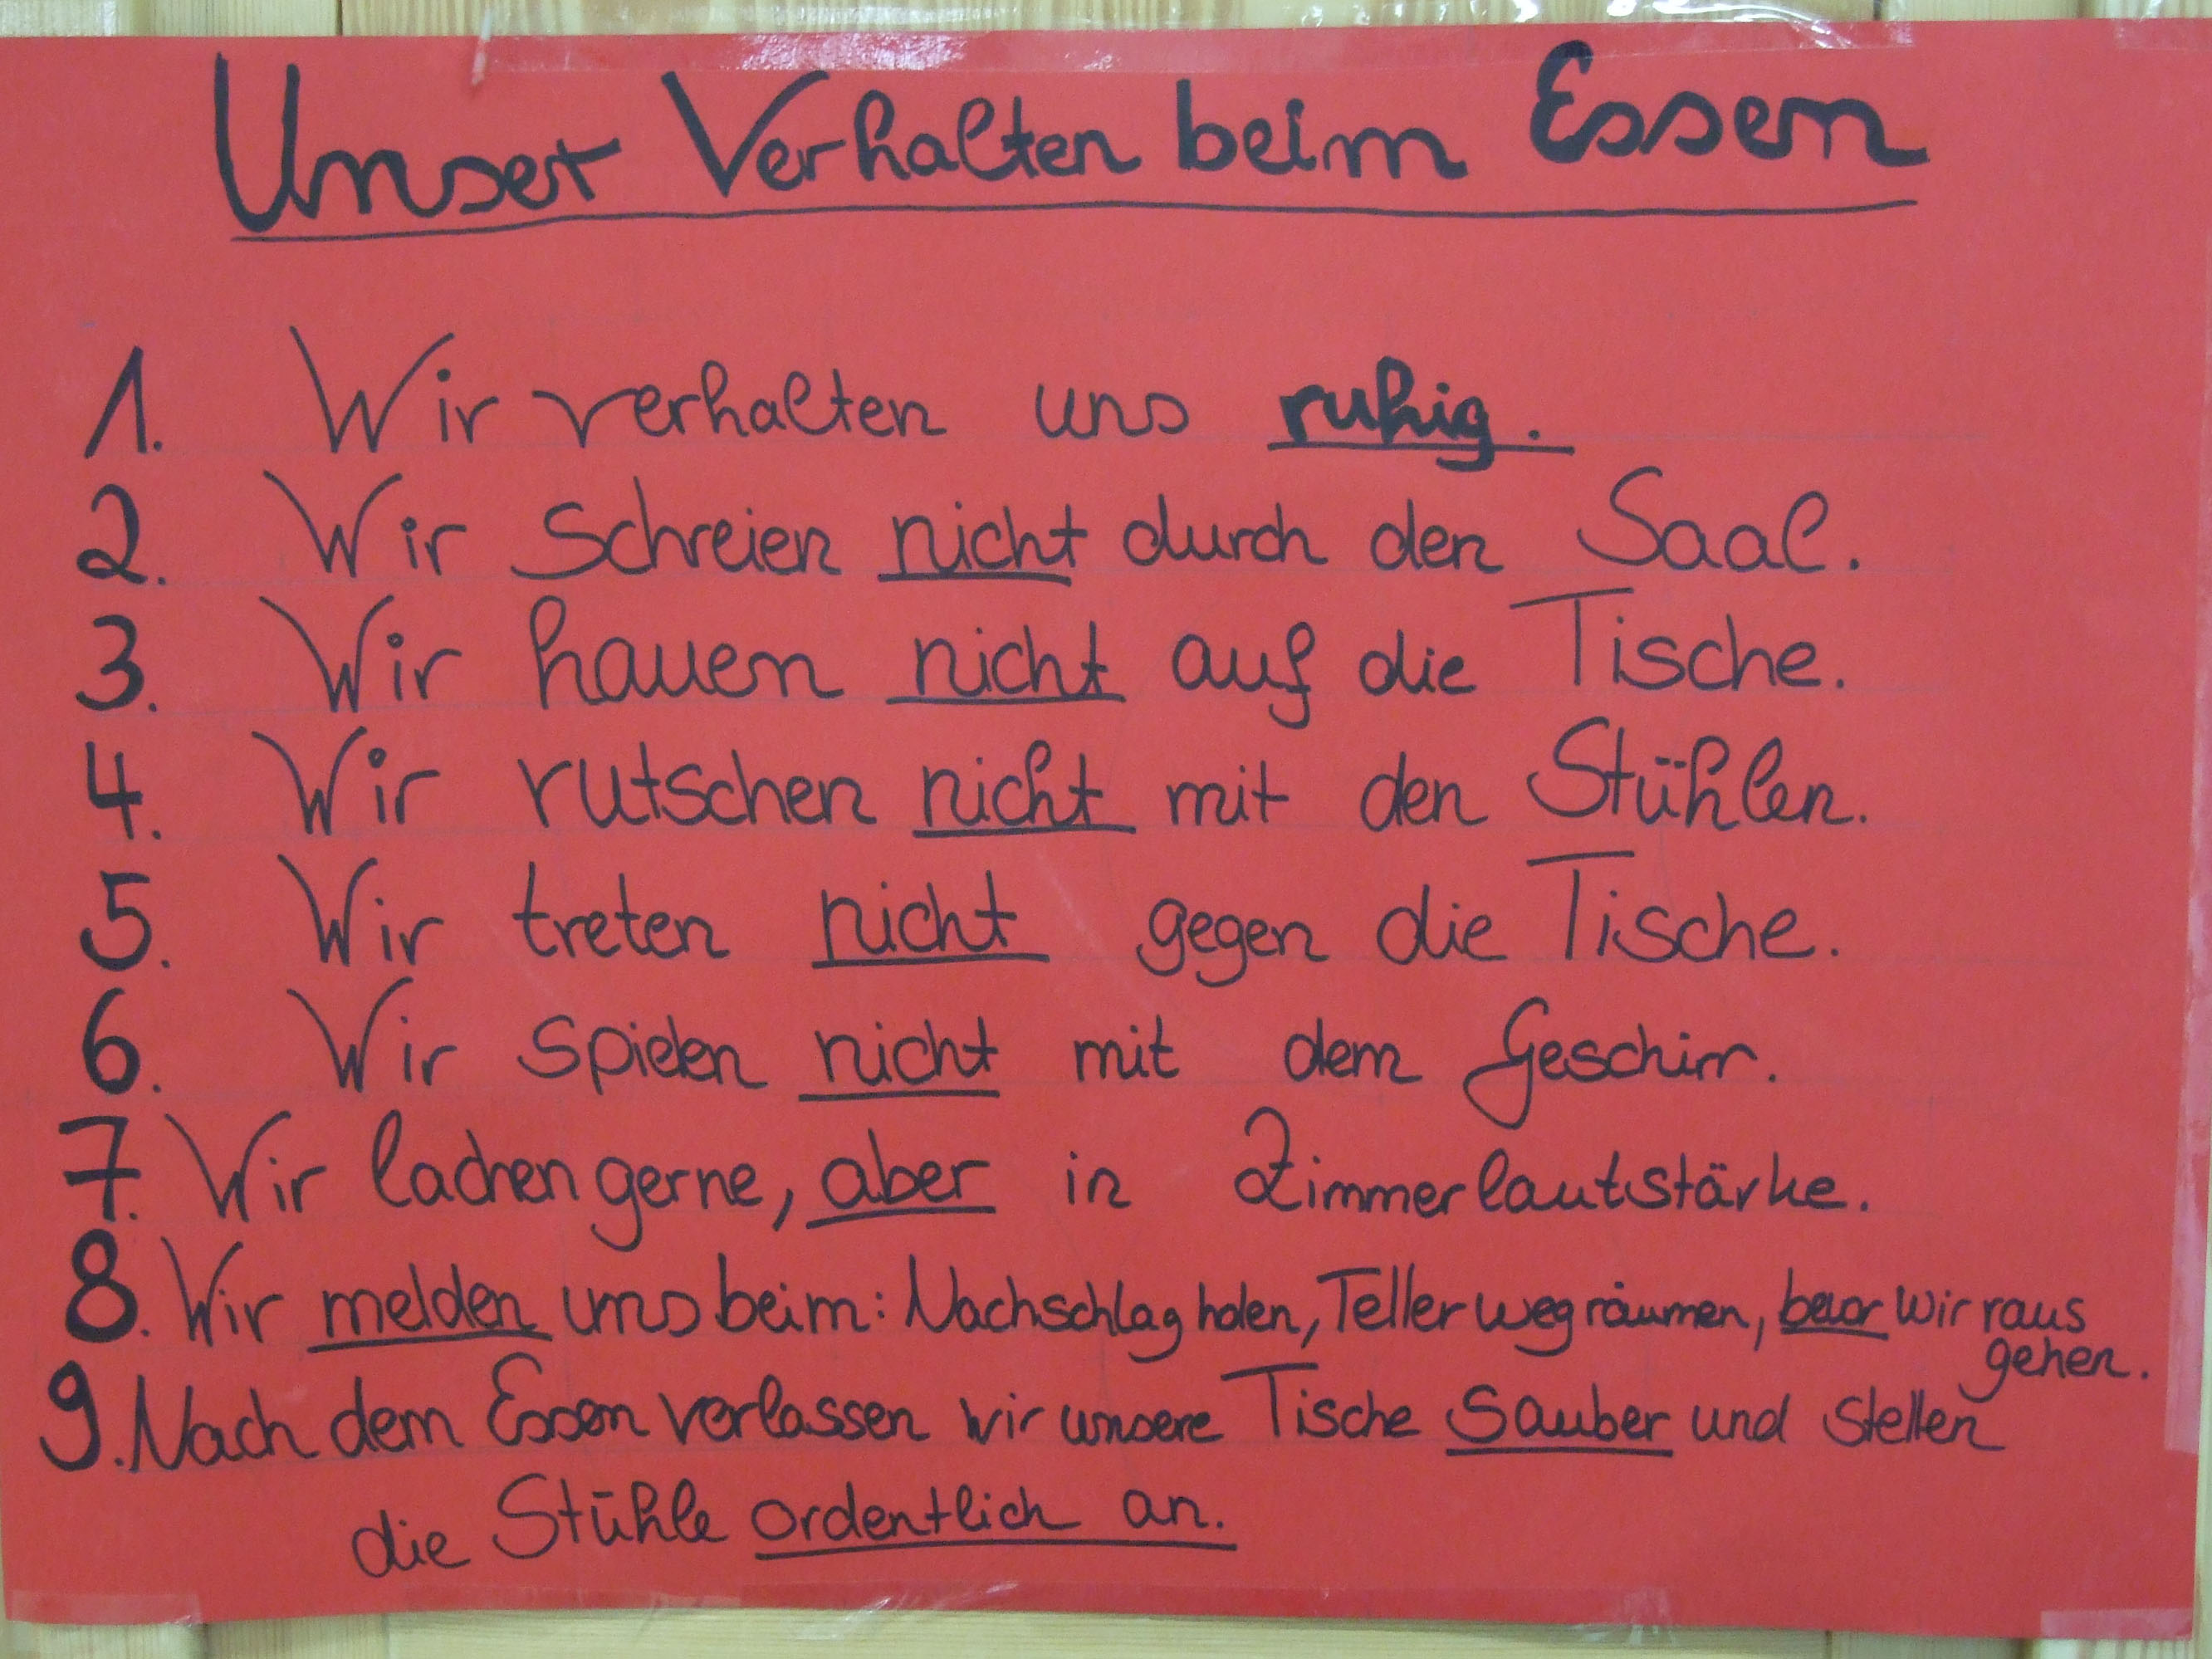 Unser Verhalten beim Essen
1. Wir verhalten uns ruhig.
2. Wir schreien nicht durch den Saal.
3. Wir hauen nicht auf die Tische.
4. Wir rutschen nicht mit den Stühlen.
5. Wir treten nicht gegen die Tische.
6. Wir spielen nicht mit dem Geschirr.
7. Wir lachen gerne, aber in Zimmerlautstärke.
8. Wir melden uns beim: Nachschlag holen, Teller weg räumen, bevor wir raus
gehen.
9. Nach dem Essen verlassen wir unsere Tische sauber und stellen
die Stühle ordentlich an.